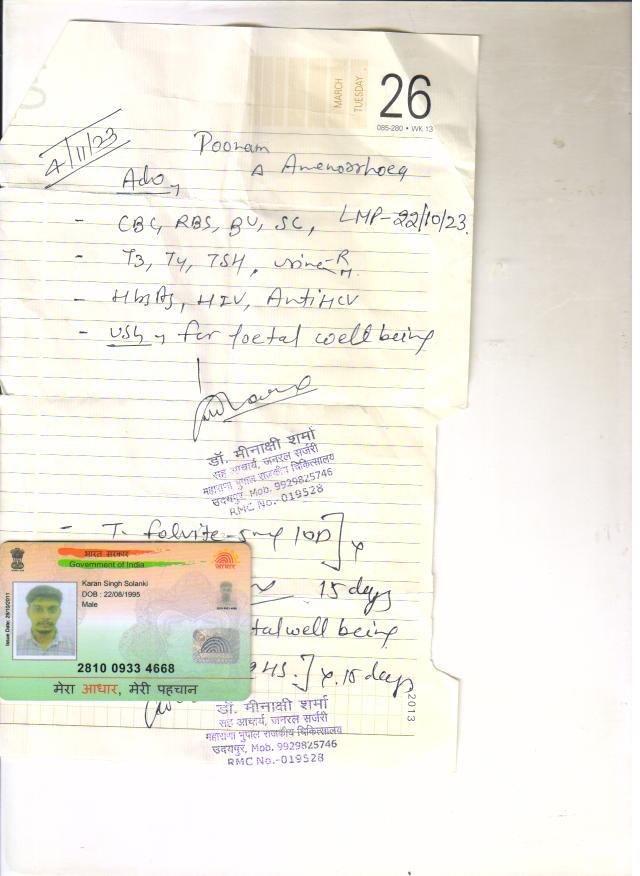 MARCH
TUESDAY
26
085-280 • WK 13
4/11/23
Poonam
Δ Amenorrhoea
Adv
- CBC, RBS, BU, SC, LMP-22/10/23.
- T3, T4, TSH, urine R/M.
- HbsAg, HIV, AntiHCV
- USG for foetal well being
डॉ. मीनाक्षी शर्मा
सह आचार्य, जनरल सर्जरी
महाराणा भुपाल राजकीय चिकित्सालय
उदयपुर, Mob. 9929825746
RMC No.-019528
- T. folvite-5mg 1OD
15 days
भारत सरकार
Government of India
आधार
Issue Date: 29/10/2011
Karan Singh Solanki
DOB : 22/08/1995
Male
2810 0933 4668
मेरा आधार, मेरी पहचान
tal well being
HS. ] x 15 days
2013
डॉ. मीनाक्षी शर्मा
सह आचार्य, जनरल सर्जरी
महाराणा भुपाल राजकीय चिकित्सालय
उदयपुर, Mob. 9929825746
RMC No.-019528